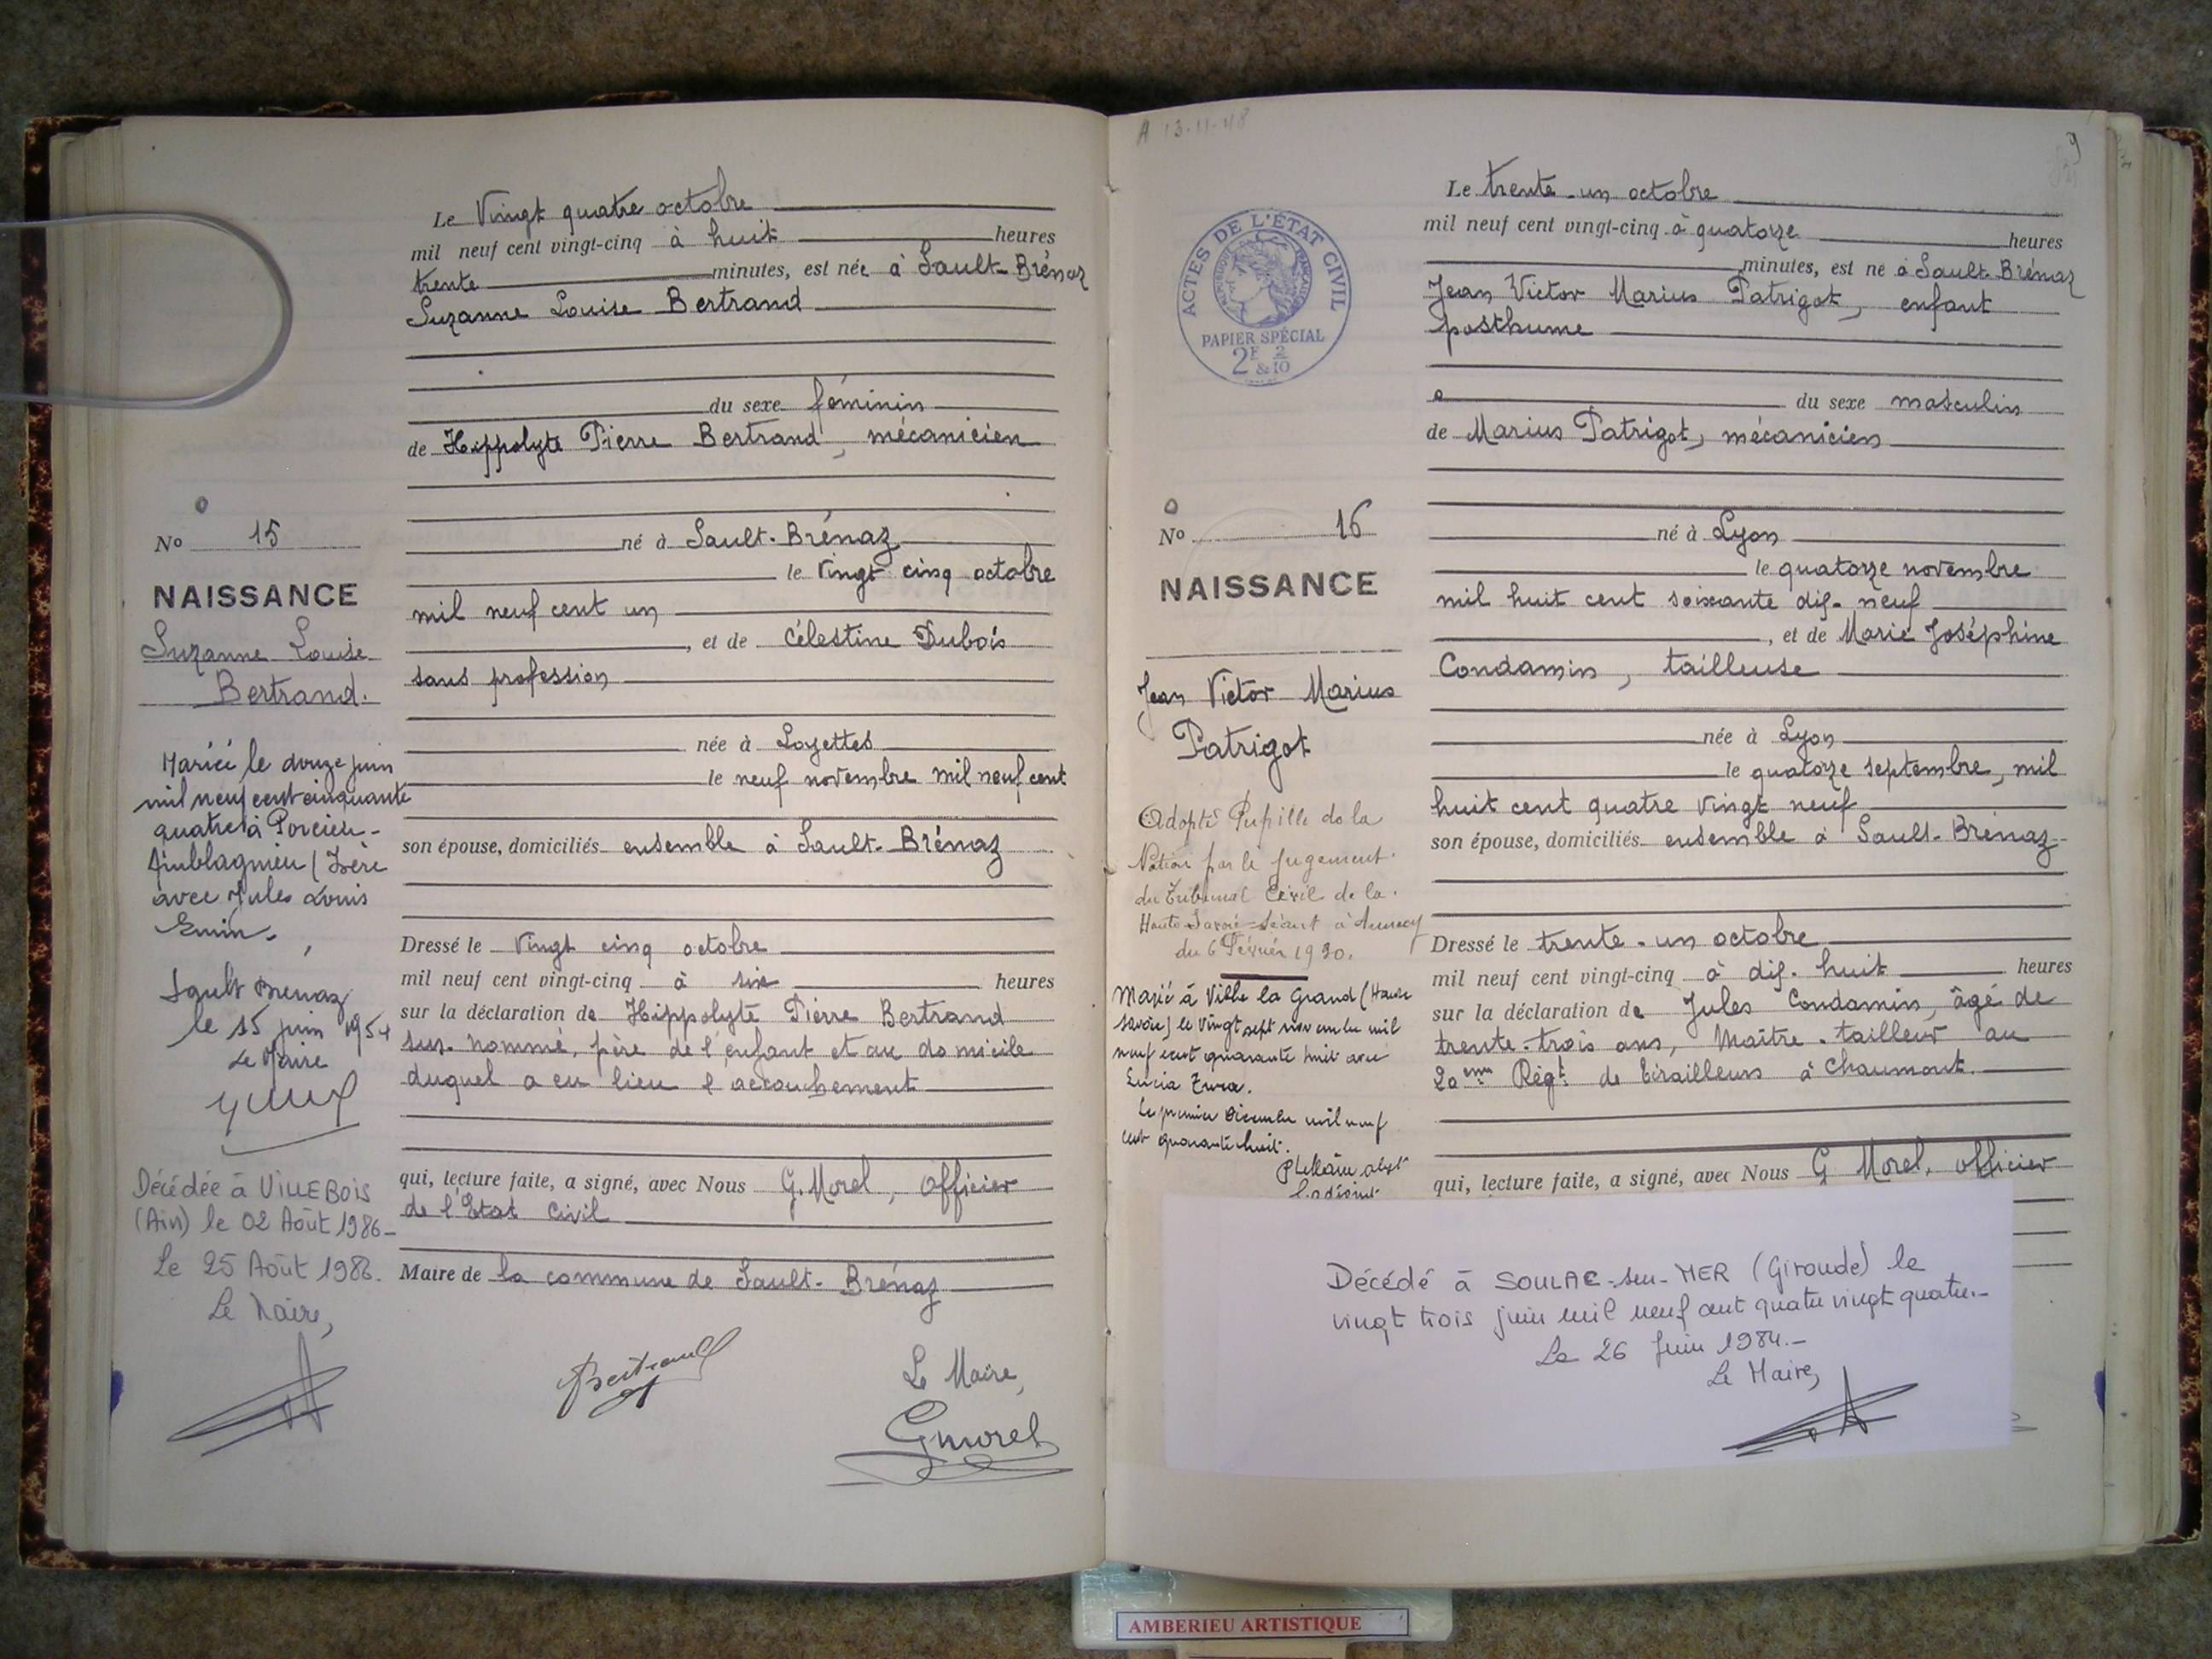 Le Vingt quatre octobre
mil neuf cent vingt-cinq à huit heures
trente minutes, est née à Sault-Brénaz
Suzanne Louise Bertrand
du sexe féminin
de Hippolyte Pierre Bertrand, mécanicien
né à Sault-Brénaz
le Vingt cinq octobre
mil neuf cent un
, et de Célestine Dubois
sans profession
née à Loyettes
le neuf novembre mil neuf cent
son épouse, domiciliés ensemble à Sault-Brénaz
Dressé le Vingt cinq octobre
mil neuf cent vingt-cinq à six heures
sur la déclaration de Hippolyte Pierre Bertrand
sus-nommé, père de l'enfant et au domicile
duquel a eu lieu l'accouchement
qui, lecture faite, a signé, avec Nous G. Morel, officier
de l'Etat Civil
Maire de la commune de Sault-Brénaz
Bertrand
Le Maire,
Gmorel
No 15
NAISSANCE
Suzanne Louise
Bertrand.
Mariée le douze juin
mil neuf cent cinquante
quatre à Porcieu-
Amblagnieu (Isère
avec Jules Louis
Emin.
Sault Brenaz
le 15 juin 1954
Le Maire
Décédée à VILLEBOIS
(Ain) le 02 Août 1986-
Le 25 Août 1986.
Le Maire,
A 13-11-48
9
ACTES DE L'ÉTAT CIVIL
RÉPUBLIQUE FRANÇAISE
PAPIER SPÉCIAL
2F & 2/10
No 16
NAISSANCE
Jean Victor Marius
Patrigot
Adopté Pupille de la
Nation par le jugement
du Tribunal Civil de la
Haute-Savoie séant à Annecy
du 6 Février 1930.
Marié à Ville la Grand (Haute
Savoie) le vingt sept novembre mil
neuf cent quarante huit avec
Lucia
Le premier Décembre mil neuf
cent quarante huit.
P le Maire abst
L'adjoint
Le trente-un octobre
mil neuf cent vingt-cinq à quatorze heures
minutes, est né à Sault-Brénaz
Jean Victor Marius Patrigot, enfant
posthume
du sexe masculin
de Marius Patrigot, mécanicien
né à Lyon
le quatorze novembre
mil huit cent soixante dix-neuf
, et de Marie Joséphine
Condamin, tailleuse
née à Lyon
le quatorze septembre, mil
huit cent quatre vingt neuf
son épouse, domiciliés ensemble à Sault-Brénaz
Dressé le trente-un octobre
mil neuf cent vingt-cinq à dix-huit heures
sur la déclaration de Jules Condamin, âgé de
trente-trois ans, Maître-tailleur au
20eme Régt de tirailleurs à Chaumont.
qui, lecture faite, a signé, avec Nous G Morel, officier
Décédé à SOULAC-sur-MER (Gironde) le
vingt trois juin mil neuf cent quatre vingt quatre.-
Le 26 Juin 1984.-
Le Maire,
AMBERIEU ARTISTIQUE